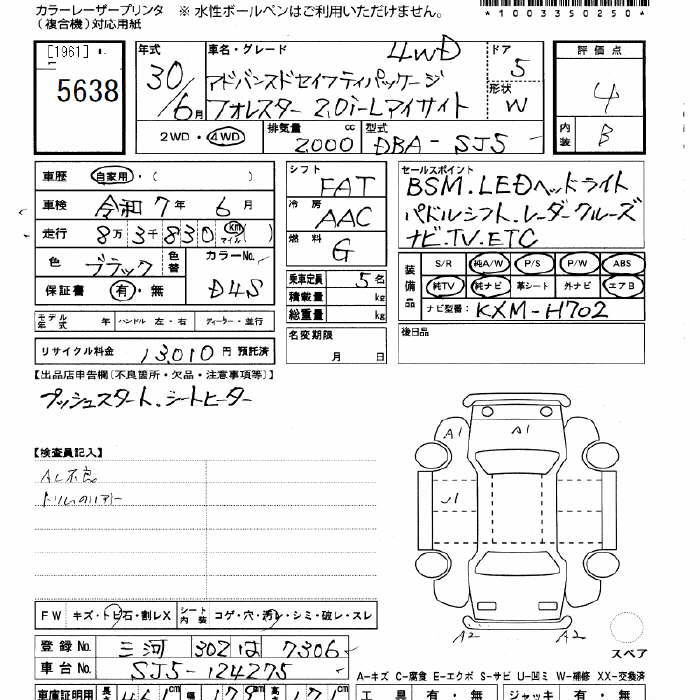 カラーレーザープリンタ ※ 水性ボールペンはご利用いただけません。
(複合機)対応用紙
*1003350250*
[1961]
5638
年式 30/6月
車名・グレード 4WD
アドバンスドセイフティパッケージ
フォレスター 2.0i-Lアイサイト
ドア 5
形状 W
評価点 4
内装 B
2WD・4WD
排気量 2000 cc
型式 DBA-SJ5
車歴 自家用・( )
車検 令和7年 6月
走行 8万3千830 (km マイル)
色 ブラック 色替
カラーNo. D4S
保証書 有・無
シフト FAT
冷房 AAC
燃料 G
乗車定員 5名
積載量 kg
総重量 kg
セールスポイント
BSM.LEDヘッドライト
パドルシフト.レーダークルーズ
ナビ.TV.ETC
装備品 S/R 純A/W P/S P/W ABS
純TV 純ナビ 革シート 外ナビ エアB
ナビ型番: KXM-H702
モデル年式 年 ハンドル 左・右 ディーラー・並行
名変期限 月 日
後日品
リサイクル料金 13,010円 預託済
【出品店申告欄〔不良箇所・欠品・注意事項等〕】
プッシュスタート.シートヒーター
【検査員記入】
AC不良
A1
A1
A2
A2
スペア
FW キズ・トビ石・割レX
シート内装 コゲ・穴・汚レ・シミ・破レ・スレ
登録No. 三河 302 は 7306
車台No. SJ5-124275
A-キズ C-腐食 E-エクボ S-サビ U-凹ミ W-補修 XX-交換済
車庫証明用 長さ 461cm 幅 179cm 高さ 171cm
工具 有・無 ジャッキ 有・無